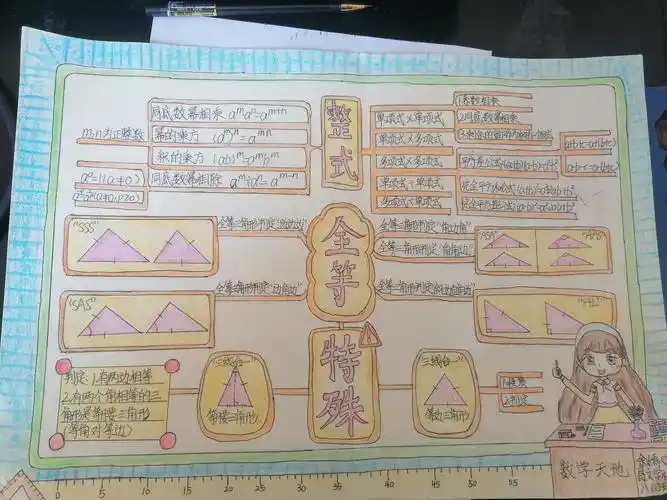 整式
m、n为正整数
同底数幂相乘 aᵐaⁿ=aᵐ⁺ⁿ
幂的乘方 (aᵐ)ⁿ=aᵐⁿ
积的乘方 (ab)ᵐ=aᵐbᵐ
同底数幂相除 aᵐ÷aⁿ=aᵐ⁻ⁿ
a⁰=1(a≠0)
单项式×单项式
单项式×多项式
多项式×多项式
单项式÷单项式
多项式÷单项式
1.系数相乘
2.同底数幂相乘
全等
"SSS"
全等三角形判定"边边边"
"SAS"
全等三角形判定"边角边"
全等三角形判定"角边角"
全等三角形判定"角角边"
"ASA"
"AAS"
"HL"
特殊
判定:1.有两边相等
2.有两个角相等的三
角形是等腰三角形
(等角对等边)
"三线合一"
等腰三角形
"三线合一"
等边三角形
1.性质
2.判定
数学天地
0 5 10 15 20 25 30 35 40 45 50 55